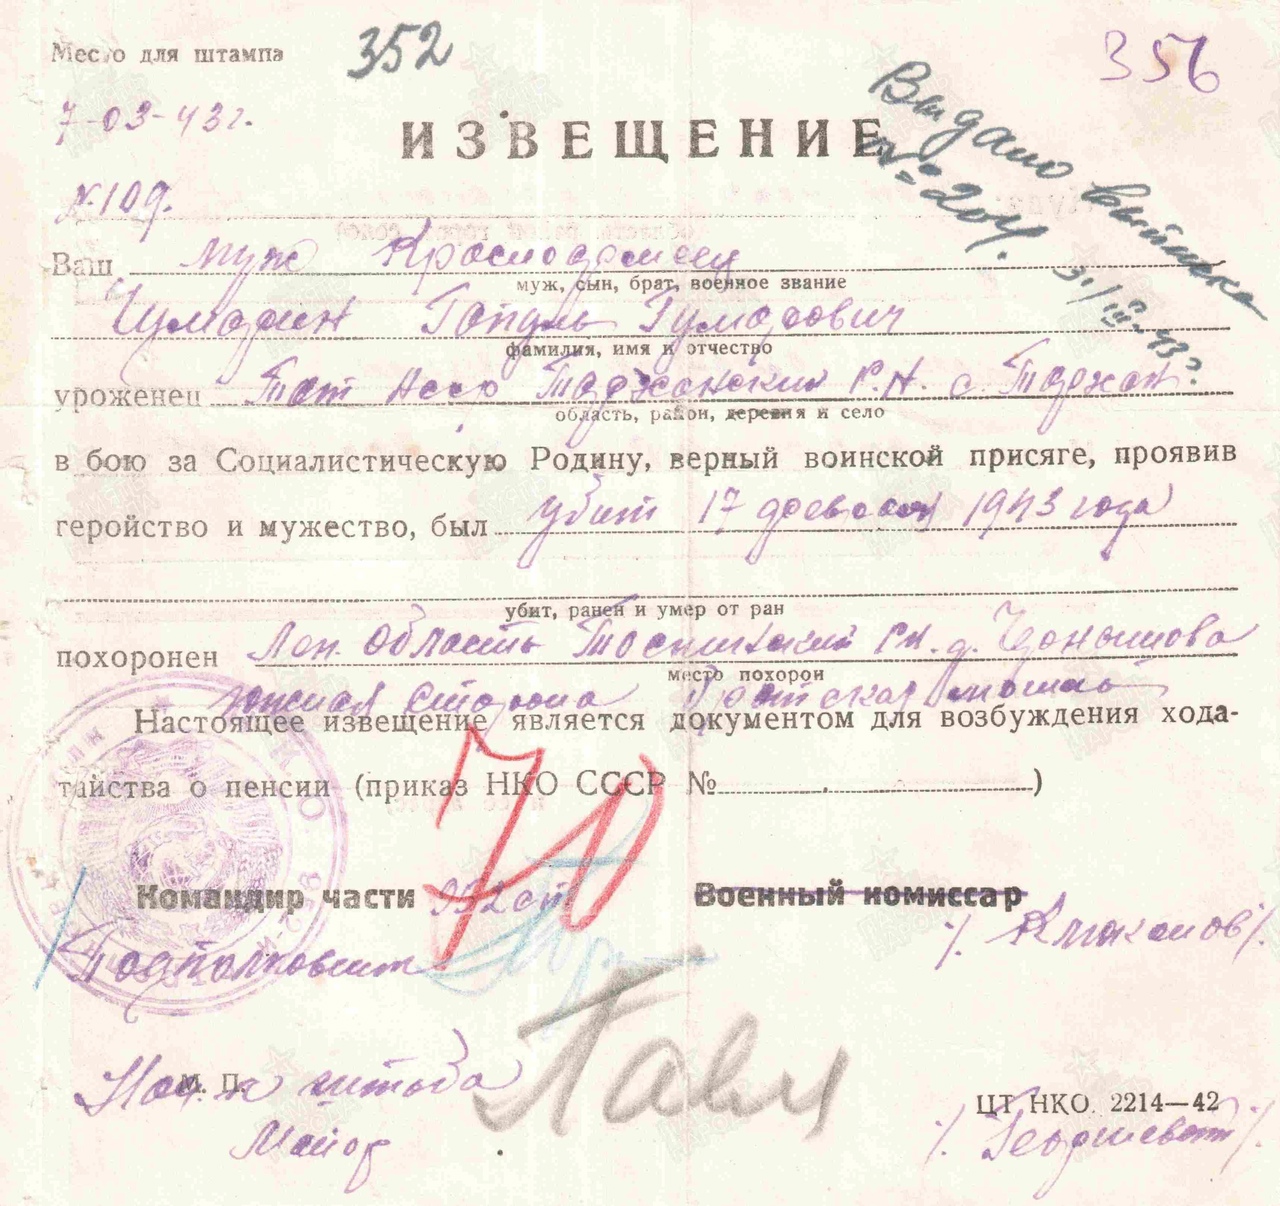 Место для штампа
352
356
7-03-43г.
ИЗВЕЩЕНИЕ
Выдано выписка
№ 204.
31/III-43г
№109.
Ваш муж Красноармеец
муж, сын, брат, военное звание
Гумарович
фамилия, имя и отчество
уроженец Тат Асср Р.Н. с.
область, район, деревня и село
в бою за Социалистическую Родину, верный воинской присяге, проявив
геройство и мужество, был убит 17 февраля 1943 года
убит, ранен и умер от ран
похоронен Лен. Область Тоснинский РН. д.
место похорон
южная Сторона Братская могила
Настоящее извещение является документом для возбуждения хода-
тайства о пенсии (приказ НКО СССР № )
70
Командир части 952 сп Военный комиссар
Подполковник
М. П.
Нач. штаба
Майор
ЦТ НКО. 2214—42